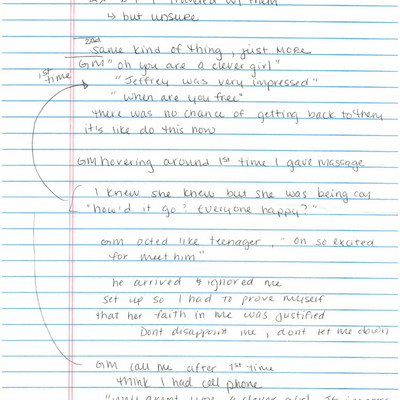 traveled w/ them
↳ but unsure
2nd same kind of thing, just MORE
GM "oh you are a clever girl"
1st time
"Jeffrey was very impressed"
"when are you free"
there was no chance of getting back to them
it's like do this now
GM hovering around 1st time I gave massage
I knew she knew but she was being coy
"how'd it go? Everyone happy?"
GM acted like teenager, "oh so excited
for meet him"
he arrived & ignored me
set up so I had to prove myself
that her faith in me was justified
Dont disappoint me, dont let me down
GM call me after 1st time
think I had cell phone
a clever girl